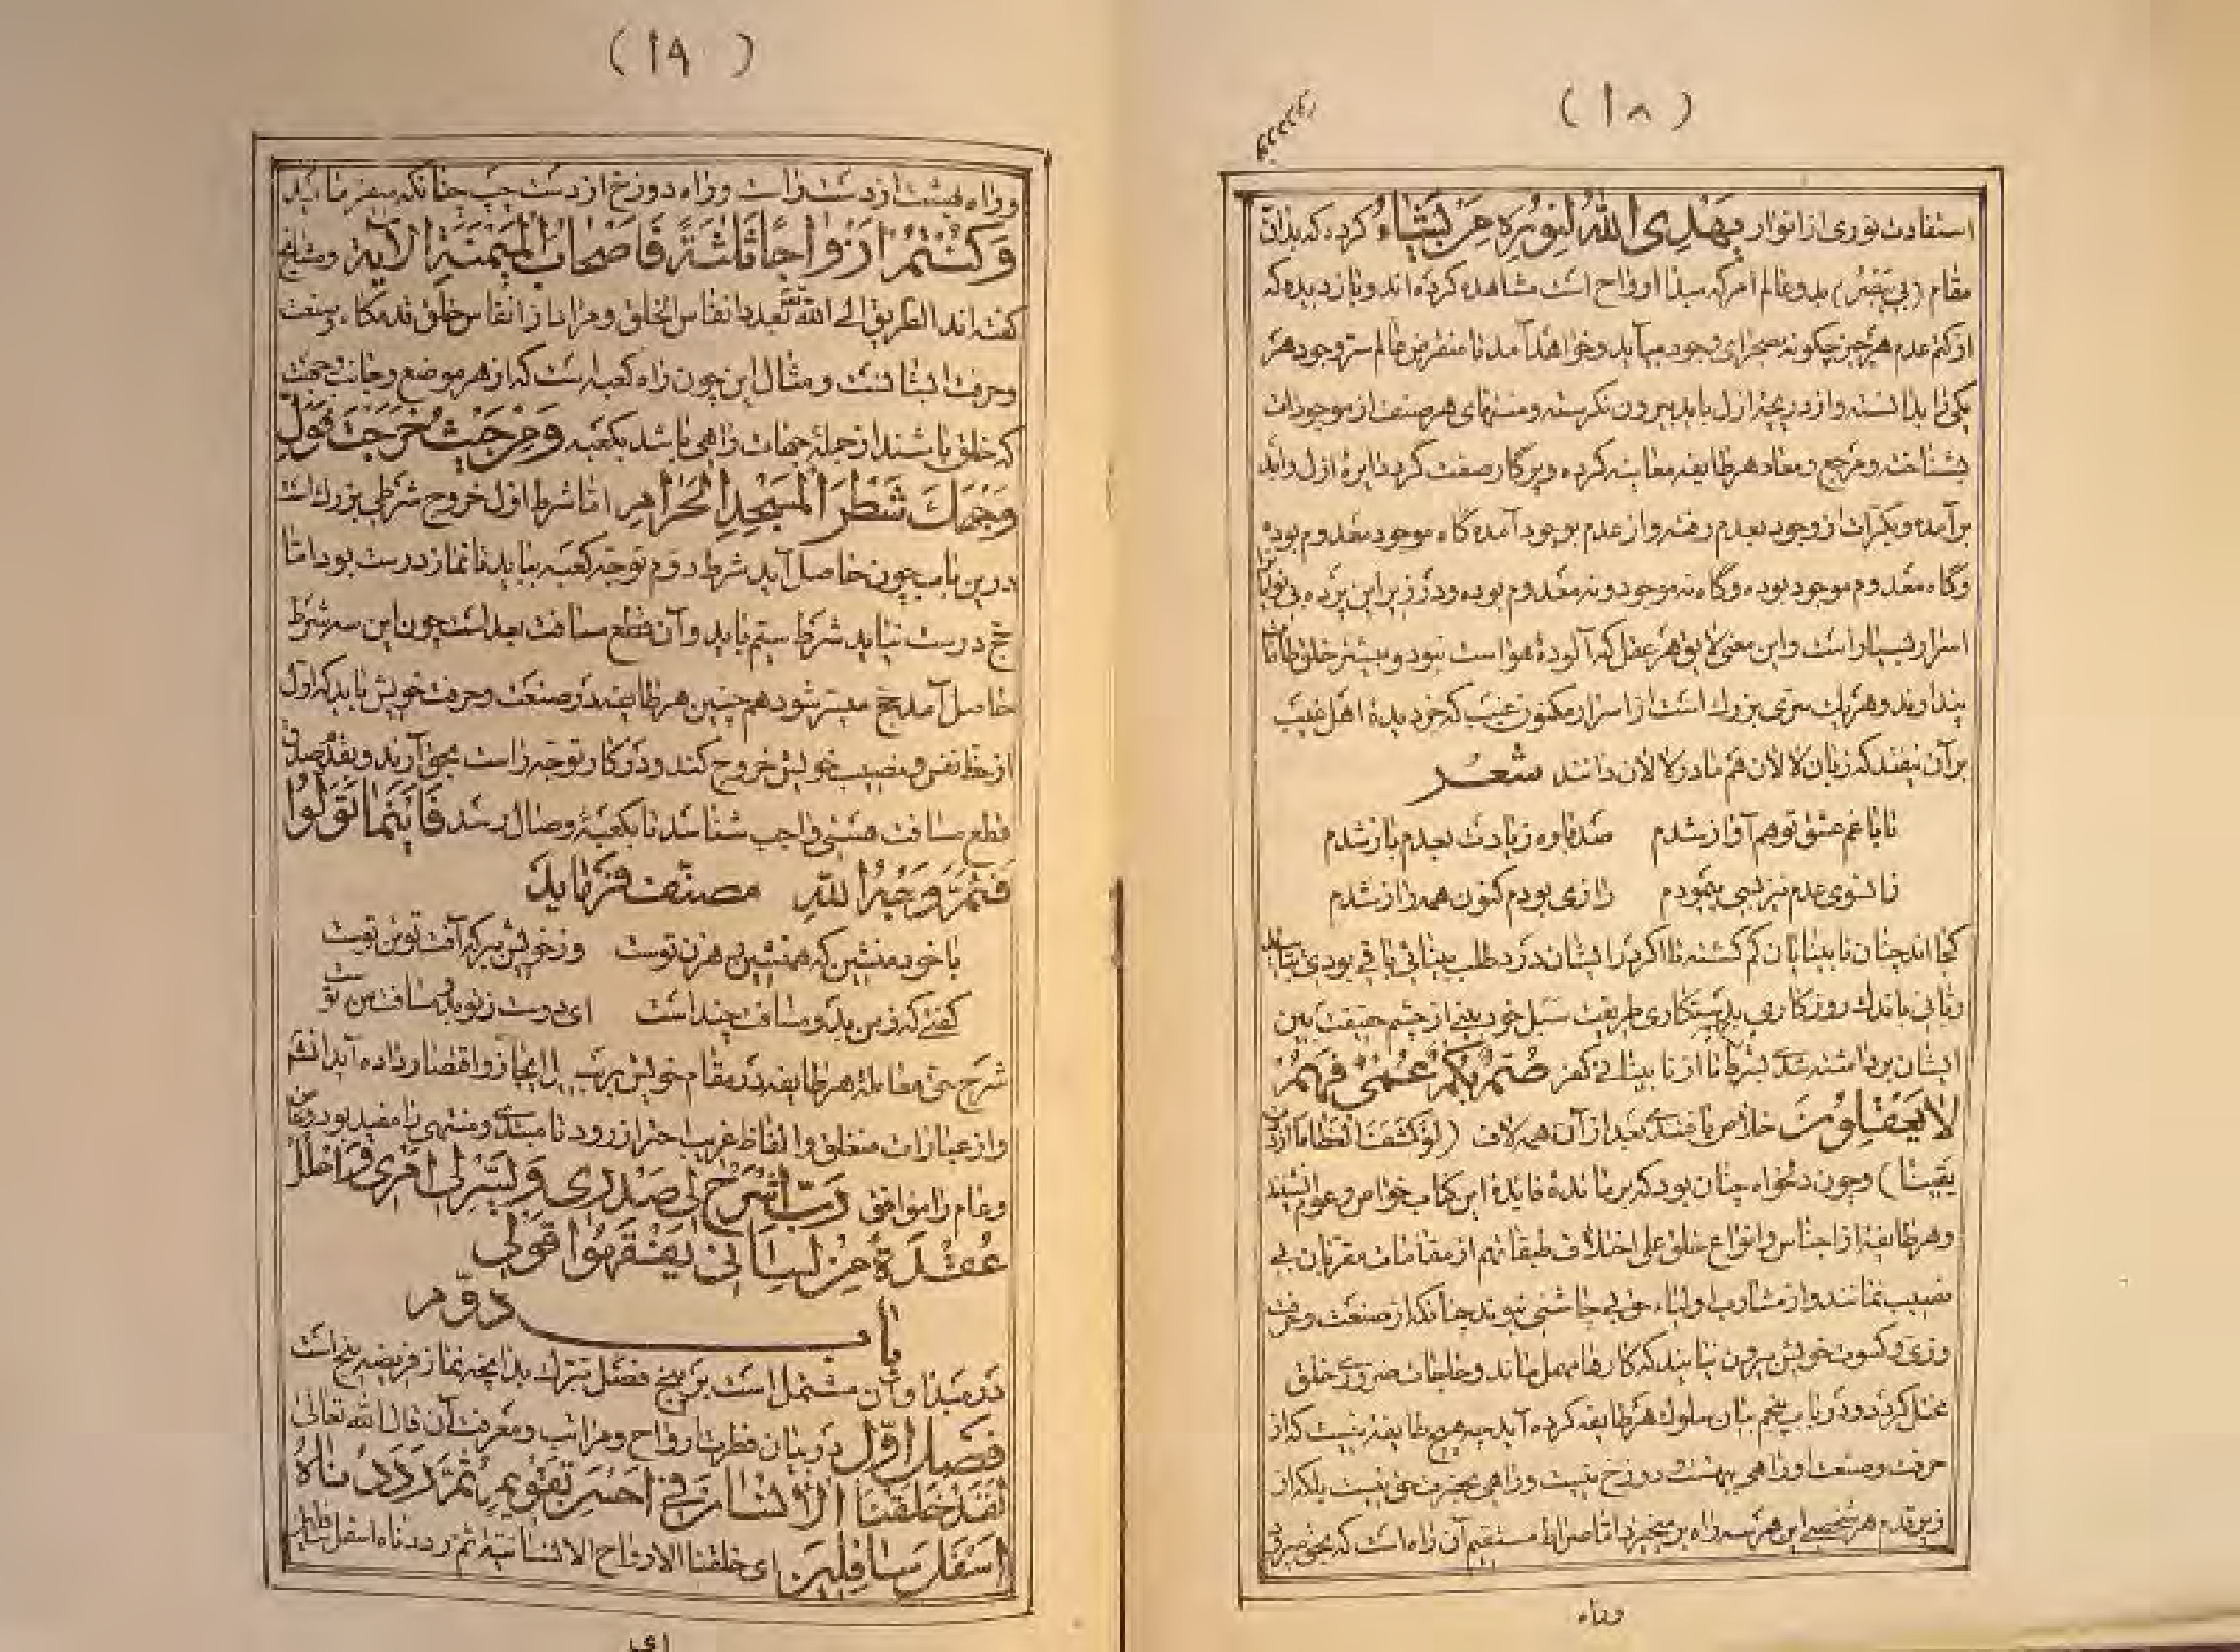 (۱۸)
استفادت نوری از انوار یهدی الله لنوره من یشاء کرده که بدان
مقام (بی یبصر) بدو عالم امر که مبدأ ارواح است مشاهده کرده اند و باز دیده که
از کتم عدم هر چیز چگونه بصحرای وجود میآید و خواهد آمد تا منقرض عالم سر وجود هر
یکی را بدانسته و از دریچه ازل بابد بیرون نگرسته و منتهای هر صنف از موجودات
بشناخته و مرجع و معاد هر طایفه معاینه کرده و پرگار صفت گرد دایرهٔ ازل و ابد
برآمده و بکرات از وجود بعدم رفته و از عدم بوجود آمده گاه موجود معدوم بوده
و گاه معدوم موجود بوده و گاه نه موجود و نه معدوم بوده و در زیر این پرده بی نوایان
اسرار بسیار است و این معنی لایق هر عقل که آلودهٔ هواست نبود و بیشتر خلق طامات
پندارند و هر یک سری بزرگ است از اسرار مکنون غیب که خود دیدهٔ اهل غیب
بر آن نیفتد که زبان لالان هم مادر لالان دانند شعر
تا با غم عشق تو هم آواز شدم صد باره زیادت بعدم باز شدم
زانسوی عدم نیز بسی پیمودم رازی بودم کنون همه راز شدم
کجا اند چنان نابینایان گم گشته تا اگر در ایشان درد طلب بینائی باقی بودی
ربانی باندک روزگاری بدستکاری طریقت سبل خود بینی از چشم حقیقت بین
ایشان برداشته شدی بشرط تا از نابینائی کفر صم بکم عمی فهم
لا یعقلون خلاص یافتندی بعد از آن همه لاف (لو کشف الغطا ما ازددت
یقینا) و چون دلخواه چنان بود که بر مائدهٔ فایدهٔ این کتاب خواص و عوام نشینند
و هر طایفه از اجناس و انواع خلق علی اختلاف طبقاتهم از مقامات مقربان بی
نصیب نمانند و از مشارب اولیاء حق بی چاشنی نبوند چنانکه از صنعت و حرفت
و زی و کسوت خویش بیرون نیایند که کارها مهمل ماند و حاجات ضروری خلق
مختل گردد و در باب پنجم بیان سلوک هر طایفه کرده آید چه هیچ طایفه نیست که از
حرفت و صنعت او راهی ببهشت و دوزخ نیست و راهی بحضرت حق نیست بلکه از
زیر قدم هر شخصی این هر سه راه بر میخیزد اما صراط مستقیم آن راه است که بحق میرود
و راه
(۱۹)
و راه بهشت از دست راست و راه دوزخ از دست چپ چنانکه میفرماید
وکنتم ازواجا ثلثة فاصحاب المیمنة الآیة و مشایخ
گفته اند الطریق الی الله بعدد انفاس الخلق و مراد از انفاس خلق قدمگاه و صنعت
و حرفت ایشانست و مثال این چون راه کعبه است که از هر موضع و جانب و جهت
که خلق باشند از جملهٔ جهات راهی باشد بکعبه و من حیث خرجت فول
وجهک شطر المسجد الحرام اما شرط اول خروج شرطی بزرگ است
درین باب چون حاصل آید شرط دوم توجه کعبه بباید تا نماز درست بود اما
حج درست نیاید شرط سیم باید و آن قطع مسافت بعد است چون این سه شرط
حاصل آمد حج میسر شود هم چنین هر طایفه در صنعت و حرفت خویش باید که اول
از حظ نفس و نصیب خویش خروج کنند و در کار توجه راست بحق آرند و بقدم صدق
قطع مسافت هستی واجب شناسد تا بکعبهٔ وصال رسد فاینما تولوا
فثم وجه الله مصنف فرماید
با خود منشین که همنشین رهزن توست وز خویش ببر که آفت تو تن توست
گفتی که ز من بدو مسافت چند است ای دوست ز تو بدو مسافت من توست
شرح حق معاملهٔ هر طایفه در مقام خویش برتیب را ایجاز و اقتصار داده آید انشم
و از عبارات متعلق و الفاظ غریب احتراز رود تا مبتدی و منتهی را مفید بود و خاص
و عام را موافق رب اشرح لی صدری و یسر لی امری و احلل
عقدة من لسانی یفقهوا قولی
باب دوم
در مبدأ و آن مشتمل است بر پنج فصل تبرک بدانچه نماز فریضه پنج است
فصل اول در بیان فطرت ارواح و مراتب و معرفت آن قال الله تعالی
لقد خلقنا الانسان فی احسن تقویم ثم رددناه
اسفل سافلین ای خلقنا الارواح الانسانیة ثم رددناه اسفل سافلین
ای